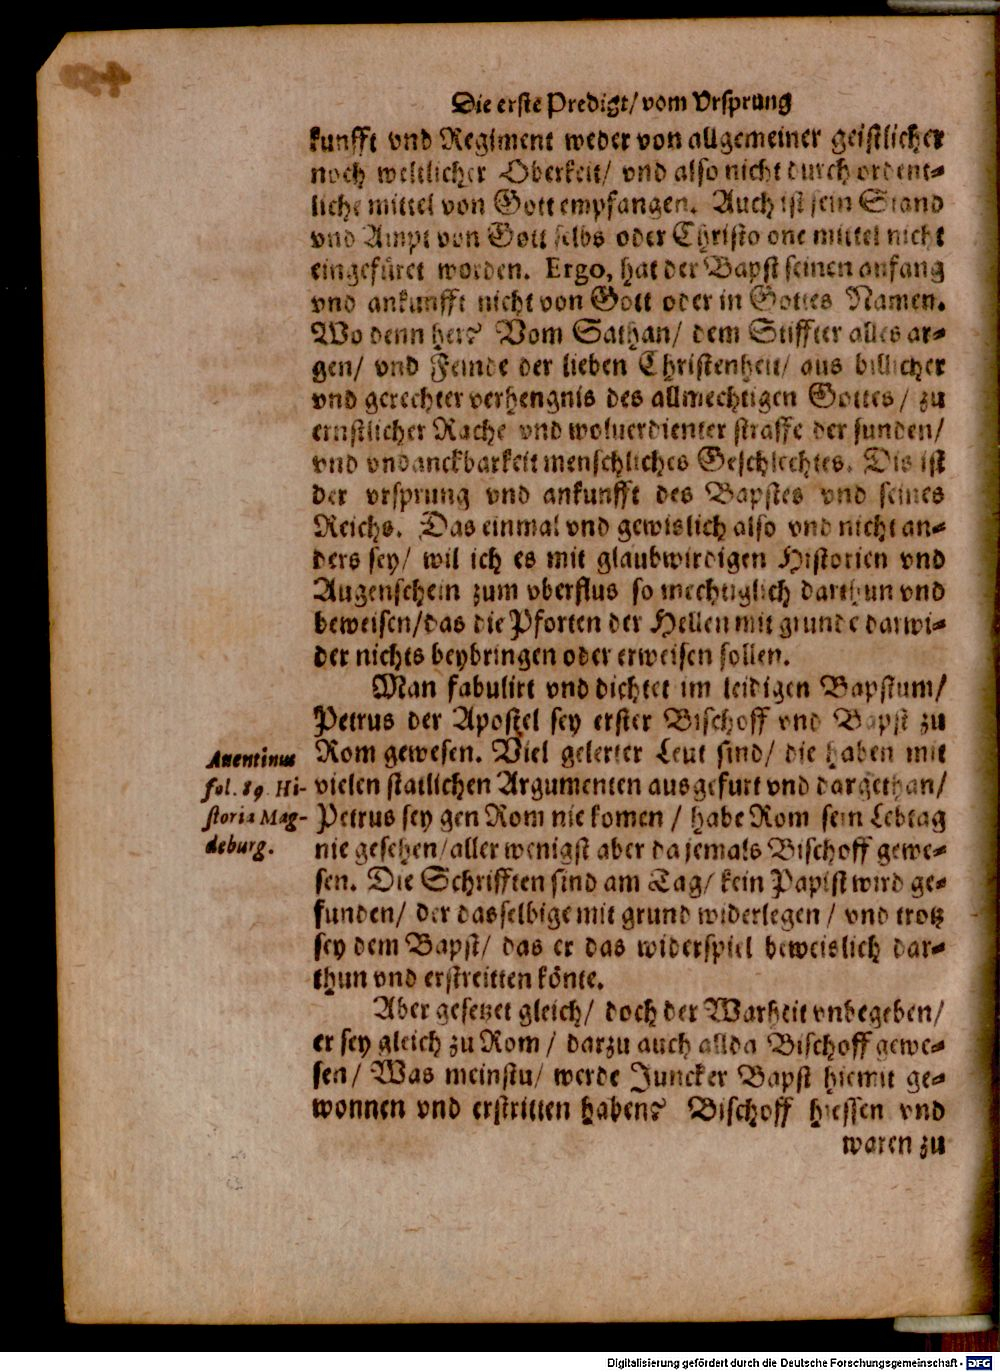 Die erste Predigt/ vom Vrsprung
kunfft vnd Regiment weder von allgemeiner geistlicher
noch weltlicher Oberkeit/ vnd also nicht durch ordent-
liche mittel von Gott empfangen. Auch ist sein Stand
vnd Ampt von Gott selbs oder Christo one mittel nicht
eingefüret worden. Ergo, hat der Bapst seinen anfang
vnd ankunfft nicht von Gott oder in Gottes Namen.
Wo denn her? Vom Sathan/ dem Stiffter alles ar-
gen/ vnd Feinde der lieben Christenheit/ aus billicher
vnd gerechter verhengnis des allmechtigen Gottes/ zu
ernstlicher Rache vnd woluerdienter straffe der sunden/
vnd vndanckbarkeit menschliches Geschlechtes. Dis ist
der vrsprung vnd ankunfft des Bapstes vnd seines
Reichs. Das einmal vnd gewislich also vnd nicht an-
ders sey/ wil ich es mit glaubwirdigen Historien vnd
Augenschein zum vberflus so mechtiglich darthun vnd
beweisen/das die Pforten der Hellen mit grunde darwi-
der nichts beybringen oder erweisen sollen.
Man fabulirt vnd dichtet im leidigen Bapstum/
Petrus der Apostel sey erster Bischoff vnd Bapst zu
Rom gewesen. Viel gelerter Leut sind/ die haben mit
vielen statlichen Argumenten ausgefurt vnd dargethan/
Petrus sey gen Rom nie komen / habe Rom sein Lebtag
nie gesehen/aller wenigst aber da jemals Bischoff gewe-
sen. Die Schrifften sind am Tag/ kein Papist wird ge-
funden/ der dasselbige mit grund widerlegen / vnd trotz
sey dem Bapst/ das er das widerspiel beweislich dar-
thun vnd erstreitten könte.
Auentinus
fol. 89. Hi-
storia Mag-
deburg.
Aber gesetzet gleich/ doch der Warheit vnbegeben/
er sey gleich zu Rom / darzu auch allda Bischoff gewe-
sen/ Was meinstu/ werde Juncker Bapst hiemit ge-
wonnen vnd erstritten haben? Bischoff hiessen vnd
waren zu
Digitalisierung gefördert durch die Deutsche Forschungsgemeinschaft - DFG